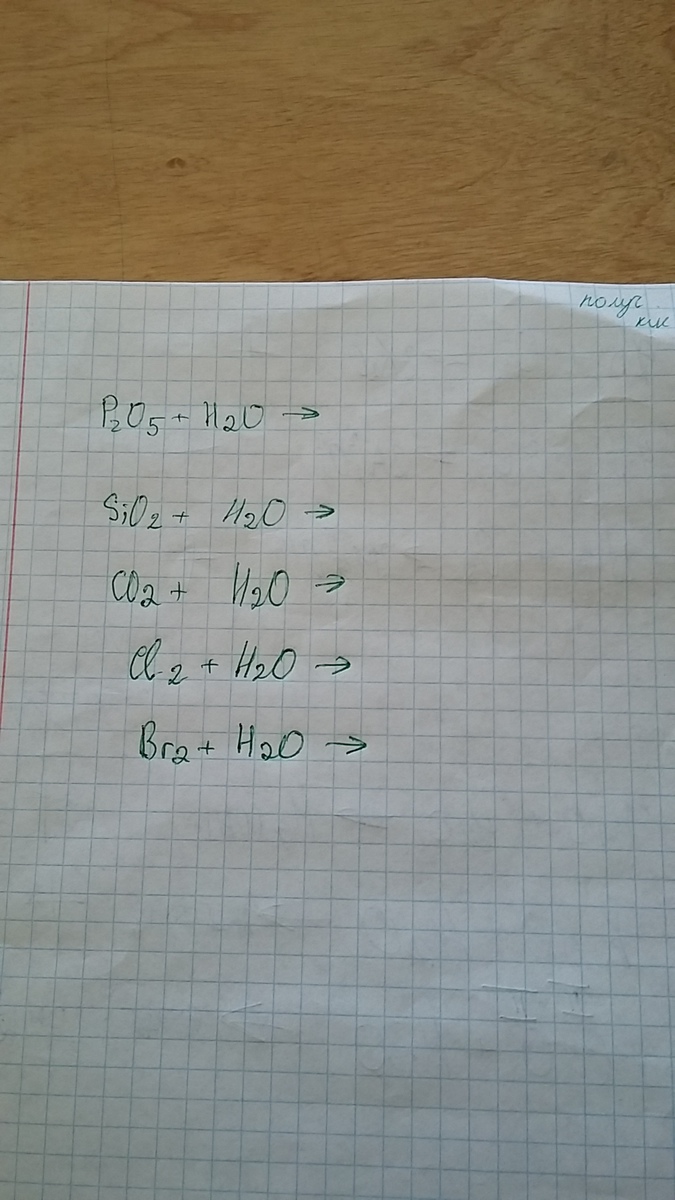 получ.
P₂O₅ + H₂O →
SiO₂ + H₂O →
CO₂ + H₂O →
Cl₂ + H₂O →
Br₂ + H₂O →